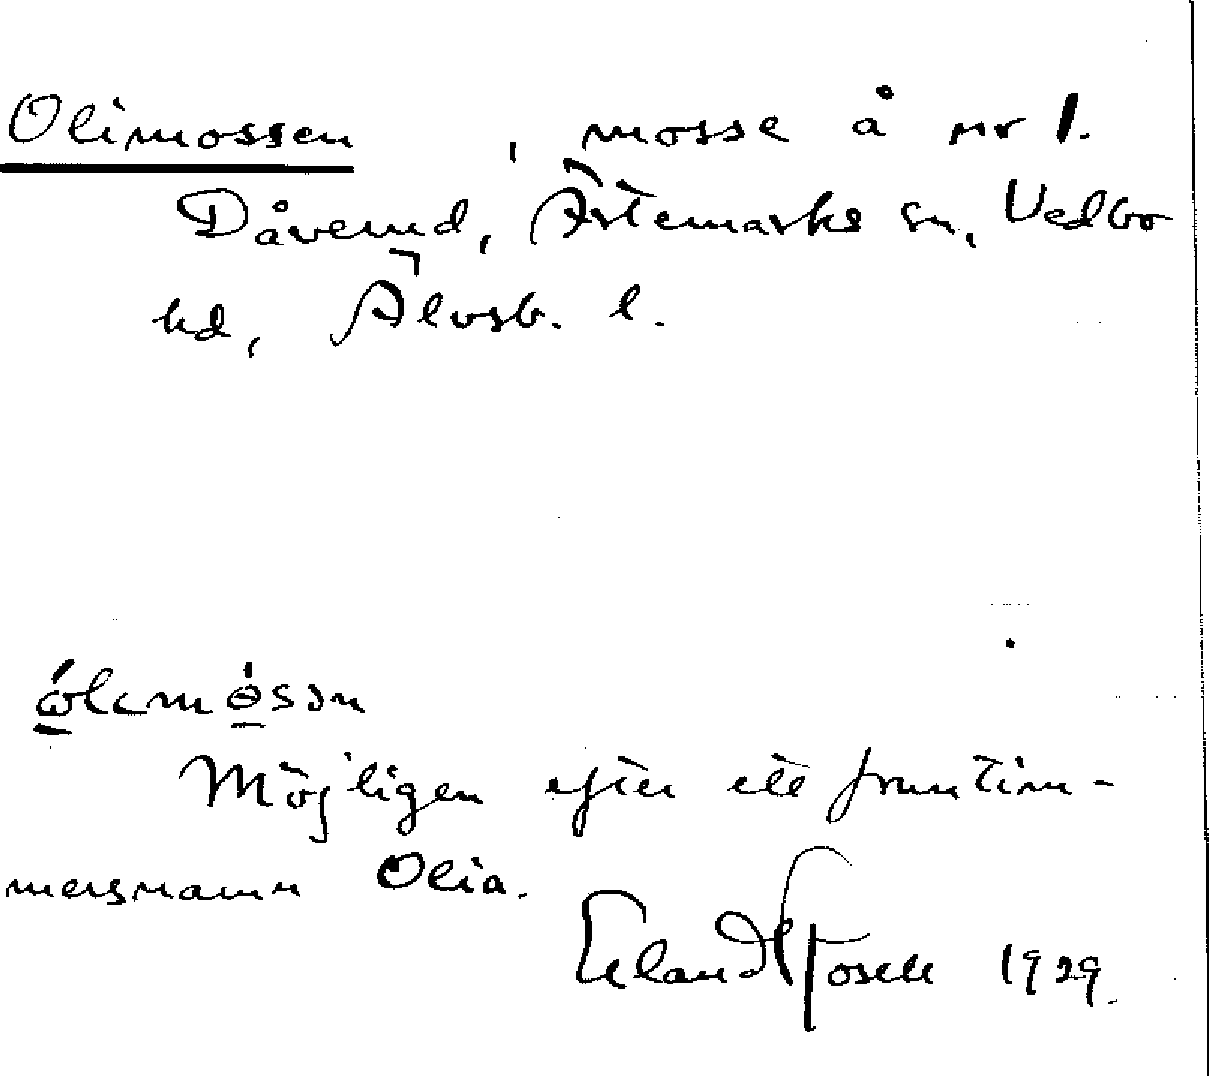 Olimossen, mosse å nr 1.
Dåverud, Ärtemarks sn, Vedbo
hd, Älvsb. l.
Möjligen efter ett fruntim-
mersnamn Olia.
Erland Rosell 1929.